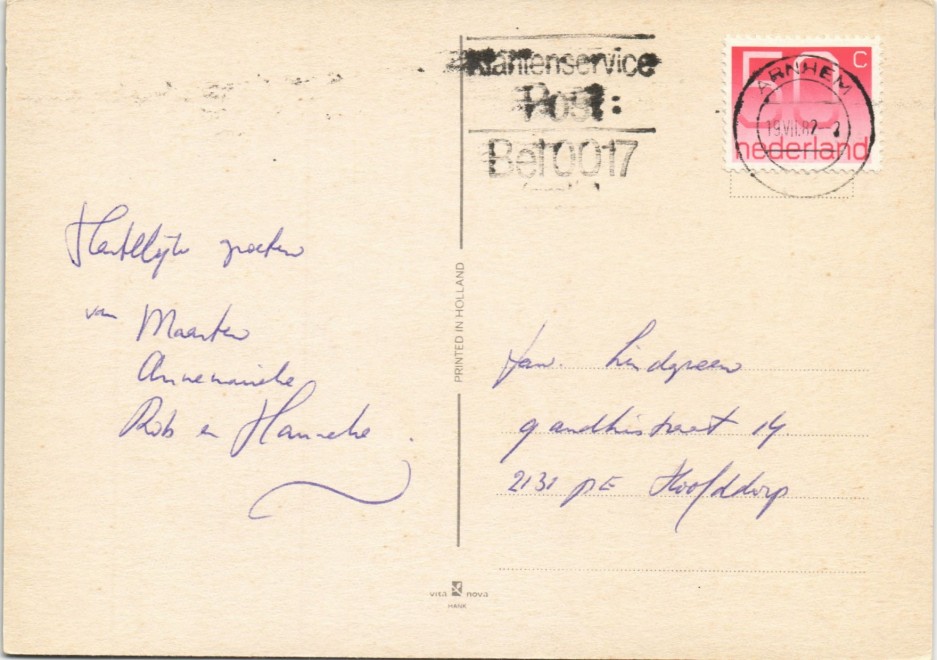 Klantenservice
Post:
Bel 0017
50 C
ARNHEM
19.VII.82
nederland
Hartelijke groeten
van Maarten
Annemarieke
Rob en Hanneke.
PRINTED IN HOLLAND
fam. Lindgreen
gandhistraat 14
2131 PE Hoofddorp
vita nova
HANK